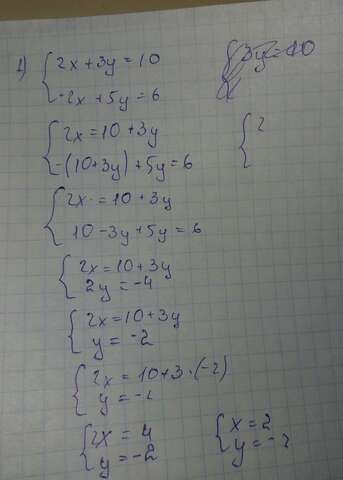 1) { 2x + 3y = 10
-2x + 5y = 6
{ 2x = 10 + 3y
-(10+3y) + 5y = 6
{ 2
{ 2x = 10 + 3y
10 - 3y + 5y = 6
{ 2x = 10 + 3y
2y = -4
{ 2x = 10 + 3y
y = -2
{ 2x = 10 + 3 · (-2)
y = -2
{ 2x = 4
y = -2
{ x = 2
y = -2